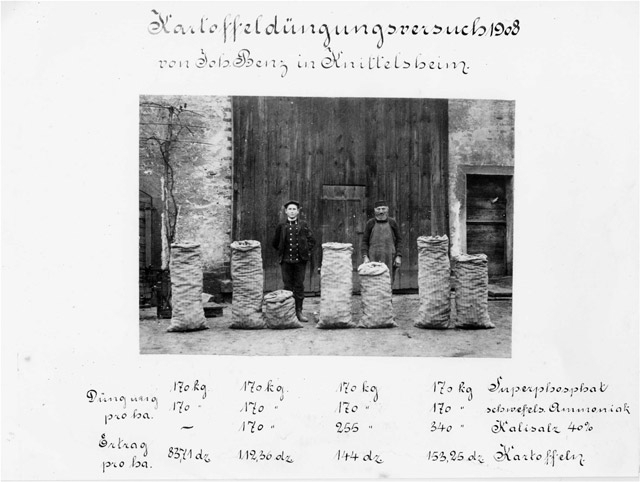 Kartoffeldüngungsversuch 1908
von Joh. Benz in Knittelsheim.
Düngung pro ha. 170 kg 170 kg. 170 kg 170 kg Superphosphat
170 " 170 " 170 " 170 " schwefels. Ammoniak
– 170 " 255 " 340 " Kalisalz 40%
Ertrag pro ha. 83,71 dz 112,36 dz. 144 dz 153,25 dz. Kartoffeln